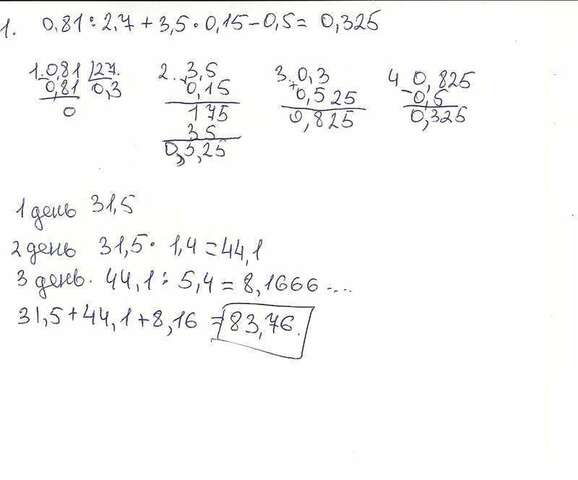 1. 0,81 : 2,7 + 3,5 · 0,15 – 0,5 = 0,325
1. 0,81 | 27.
– 0,81 0,3
0
2. 3,5
0,15
175
35
0,5,25
3. 0,3
+ 0,525
0,825
4. 0,825
– 0,5
0,325
1 день 31,5
2 день 31,5 · 1,4 = 44,1
3 день. 44,1 : 5,4 = 8,1666 ....
31,5 + 44,1 + 8,16 = 83,76.